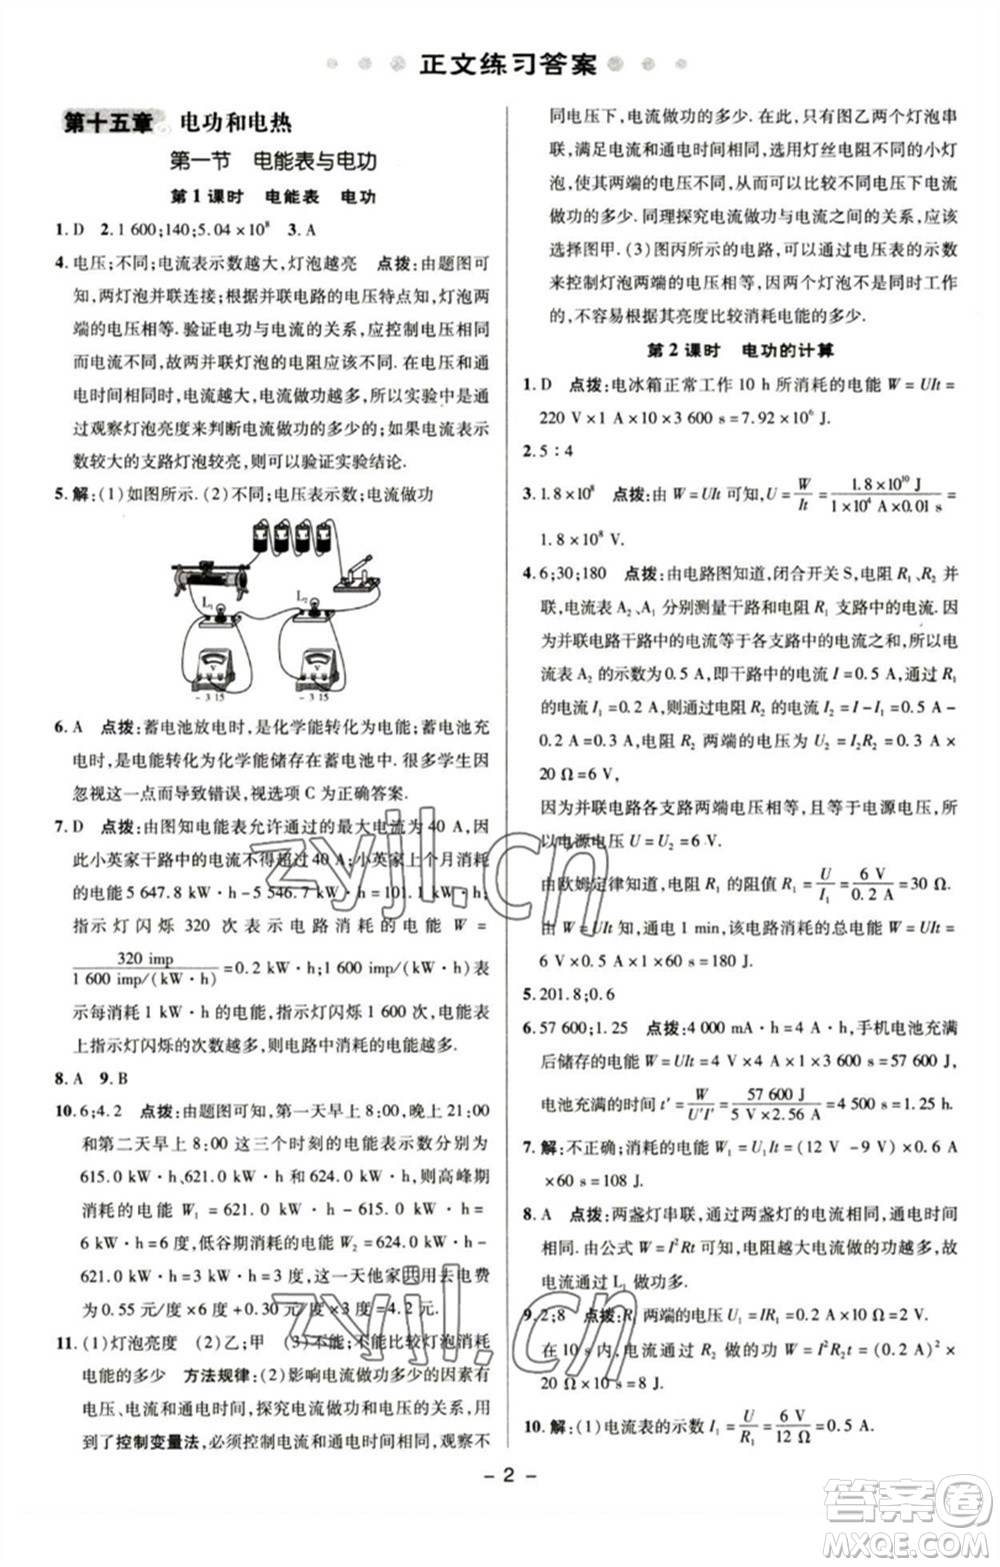 正文练习答案
第十五章 电功和电热
第一节 电能表与电功
第1课时 电能表 电功
1. D 2. 1 600;140;5.04×10⁸ 3. A
4. 电压;不同;电流表示数越大,灯泡越亮 点拨:由题图可
知,两灯泡并联连接;根据并联电路的特点知,灯泡两
端的电压相等。验证电功与电流的关系,应控制电压相
同而电流不同,故两并联灯泡的电阻应该不同。根据转
换法,实验中将相同时间内电流做功的多少转换成通
过观察灯泡亮度来判断电流做功的多少的;如果电流表
示数较大的支路灯泡较亮,则可以验证实验结论.
5. 解:(1)如图所示. (2)不同;电压表示数;电流做功
L₁
L₂
V
V
- 3 15
- 3 15
6. A 点拨:蓄电池放电时,是化学能转化为电能;蓄电池充
电时,是电能转化为化学能储存在蓄电池中. 很多学生因
忽视这一点而导致错误,视选项C为正确答案.
7. D 点拨:由图知电能表允许通过的最大电流为40 A,因
此小英家干路中的电流不得超过40 A;小英家上个月消耗
的电能5 647.8 kW·h-5 546.7 kW·h=101.1 kW·h;
指示灯闪烁 320 次表示电路消耗的电能 W =
320 imp/1 600 imp/(kW·h)=0.2 kW·h;1 600 imp/(kW·h)表
示每消耗1 kW·h的电能,指示灯闪烁1 600次,因此
指示灯闪烁的次数越多,则电路中消耗的电能越多.
8. A 9. B
10. 6;4.2 点拨:由题图可知,第一天早上8:00,晚上21:00
和第二天早上8:00这三个时刻的电能表示数分别为
615.0 kW·h、621.0 kW·h和624.0 kW·h,则高峰期
消耗的电能 W₁ = 621.0 kW·h - 615.0 kW·h =
6 kW·h=6度,低谷期消耗的电能W₂=624.0 kW·h-
621.0 kW·h=3 kW·h=3度,这一天他家共用去电费
为0.55元/度×6度+0.30元/度×3度=4.2元.
11. (1)灯泡亮度 (2)乙;甲 (3)不能;不能比较灯泡消耗
电能的多少 方法规律:(2)影响电流做功多少的因素有
电压、电流和通电时间,探究电流做功与电压的关系,用
到了控制变量法,必须控制电流和通电时间相同,观察不
同电压下,电流做功的多少. 只有图乙两个灯泡串
联,满足电流和通电时间相同,选用灯丝电阻不同的小灯
泡,使其两端的电压不同,从而比较不同电压下电流
做功的多少. 同理探究电流做功与电流之间的关系,应该
选择图甲. (3)图丙所示的电路,可以通过电压表的示数
来控制灯泡两端的电压相等,但是不是同时工作
的,不容易根据其亮度比较消耗电能的多少.
第2课时 电功的计算
1. D 点拨:电冰箱正常工作10 h所消耗的电能W=UIt=
220 V×1 A×10×3 600 s=7.92×10⁶ J.
2. 5∶4
3. 1.8×10⁸ 点拨:由W=UIt可知,U=W/It=1.8×10¹⁰ J/1×10⁴ A×0.01 s=
1.8×10⁸ V.
4. 6;30;180 点拨:由电路图知道,闭合开关S,电阻R₁、R₂并
联,电流表A₂、A₁分别测量干路和电阻R₁支路中的电流.
因为并联电路干路中的电流等于各支路中的电流之和,所以电
流表A₂的示数为0.5 A,即干路中的电流I=0.5 A,通过R₁
的电流I₁=0.2 A,则通过电阻R₂的电流I₂=I-I₁=0.5 A-
0.2 A=0.3 A,电阻R₂两端的电压为U₂=I₂R₂=0.3 A×
20 Ω=6 V,
因为并联电路各支路两端电压相等,且等于电源电压,
所以电源电压U=U₂=6 V.
由欧姆定律知道,电阻R₁的阻值R₁=U/I₁=6 V/0.2 A=30 Ω.
由W=UIt知道,通电1 min,该电路消耗的总电能W=UIt=
6 V×0.5 A×60 s=180 J.
5. 201.8;0.6
6. 57 600;1.25 点拨:4 000 mA·h=4 A·h,手机电池充满
后储存的电能W=UIt=4 V×4 A×1×3 600 s=57 600 J,
电池充满的时间t′=W/U′I′=57 600 J/5 V×2.56 A=4 500 s=1.25 h.
7. 解:不正确;消耗的电能W₁=U₁It=(12 V-9 V)×0.6 A
×60 s=108 J.
8. A 点拨:两盏灯串联,通过两盏灯的电流相同,通电时间
相同. 由公式W=I²Rt可知,电阻越大电流做的功越多,故
电流通过L₁做功多.
9. 2;8 点拨:R₁两端的电压U₁=IR₁=0.2 A×10 Ω=2 V.
在10 s内,电流通过R₂做的功W=I²R₂t=(0.2 A)²×
20 Ω×10 s=8 J.
10. 解:(1)电流表的示数I₁=U/R₁=6 V/12 Ω=0.5 A.
- 2 -
zyjl.cn
zyjl.cn
答案圈
MXQE.COM